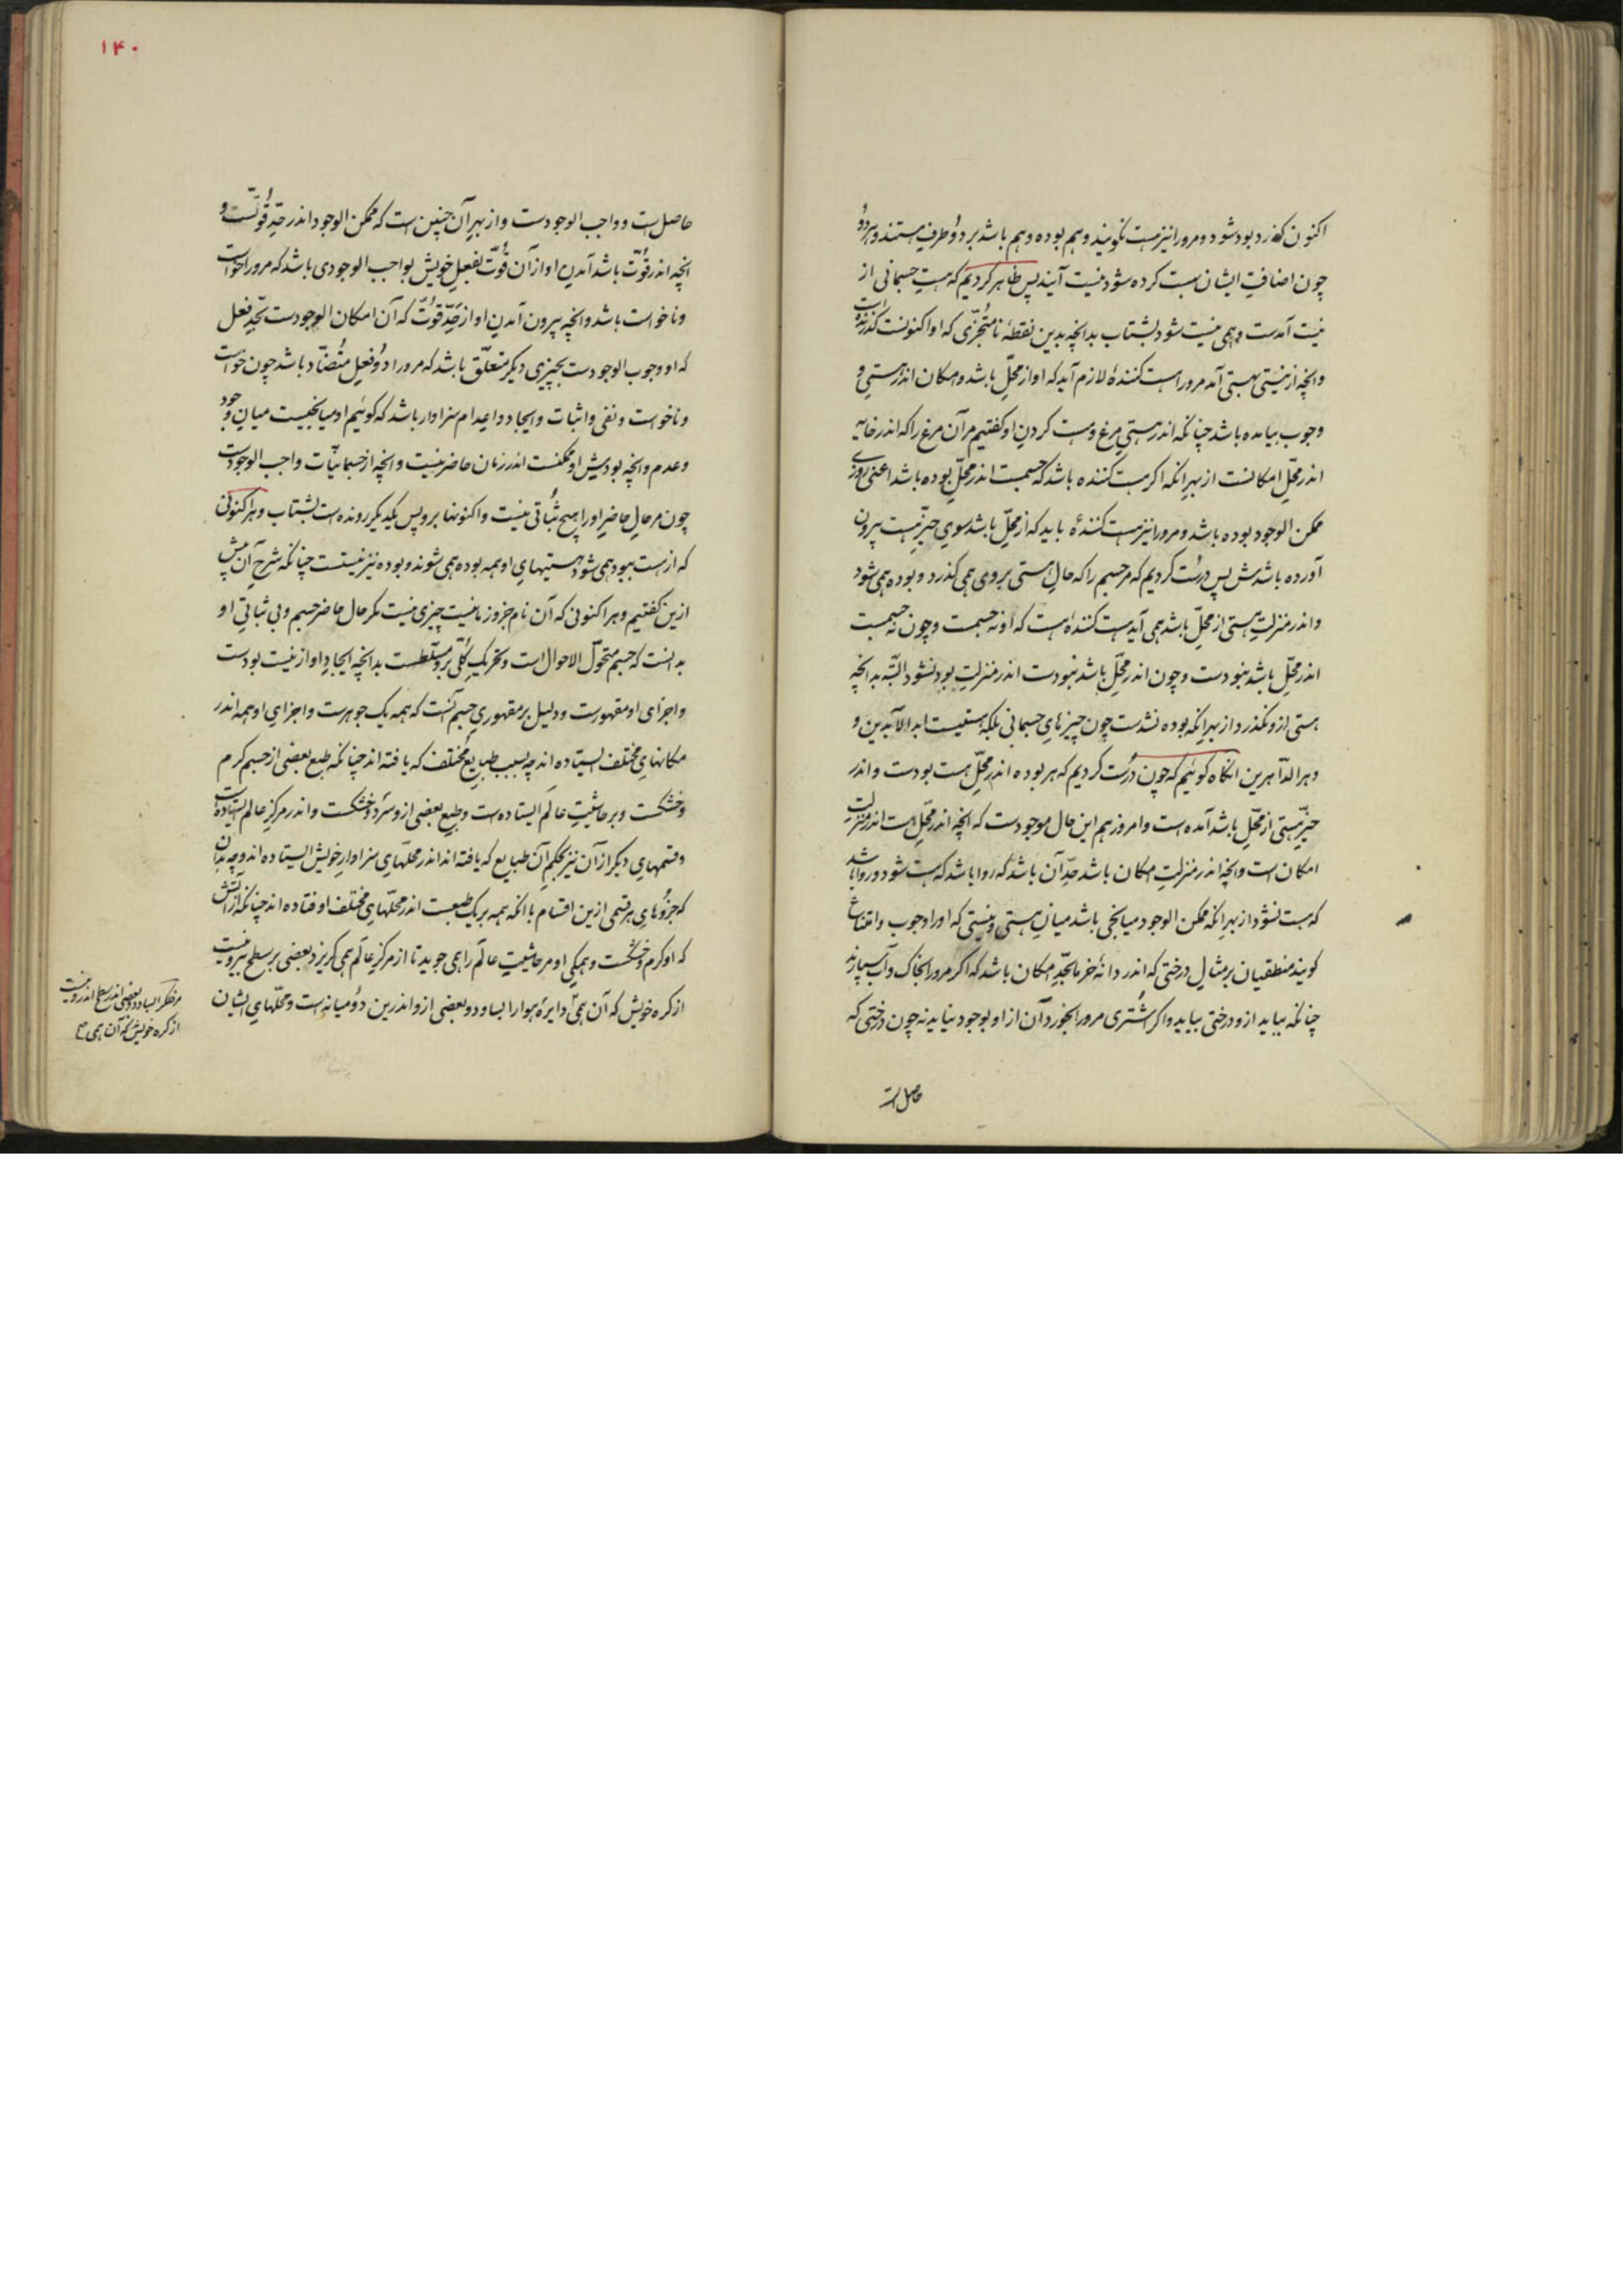 اکنون که زد بود شود و مرورا نیز هست نگویند و هم بوده و هم باشد بر دو طرف هستند و هردو
چون اضافت ایشان بهست کرده شود نیست آیند پس ظاهر کردیم که هست جسمانی از
نیست آمدست و همی نیست شود بشتاب بدانچه بدین نقطهٔ نامتجزی که او اکنونست گذرنده است
وانچه از نیستی بهستی آمد مرورا هست کنندهٔ لازم آید که او از محل باشد و امکان اندر هستی و
وجوب بیامده باشد چنانکه اندر هستی مرغ و هست کردن او گفتیم مر آن مرغ را که اندر خایه
اندر محل امکانست از بهر انکه اگر هست کننده باشد که جسمست اندر محل بوده باشد اعنی روزی
ممکن الوجود بوده باشد و مرورا نیز هست کنندهٔ باید که از محل باشد سوی حیز هست بیرون
آورده باشدش پس درست کردیم که مر جسم را که حال هستی بروی همی گذرد و بوده همی شود
و اندر منزلت هستی از محل باشد همی آید هست کننده است که او نه جسمست و چون نه جسمست
اندر محل باشد نبودست و چون اندر محل باشد نبودست اندر منزلت بود نشود البته بدانچه
هستی ازو نگذرد از بهر انکه بوده نشدست چون چیزهای جسمانی بلکه هستیست ابد الآبدین و
دهر الداهرین انگاه گوئیم که چون درست کردیم که هر بوده اندر محل هست بودست و اندر
حیز هستی از محل باشد آمده است و امروز هم این حال موجودست که انچه اندر محل هست اندر منزلت
امکان است وانچه اندر منزلت امکان باشد حد آن باشد که روا باشد که هست شود و روا باشد
که هست نشود از بهر انکه ممکن الوجود میانجی باشد میان هستی و نیستی که اورا وجوب و امتناع
گویند منطقیان بر مثال درختی که اندر دانهٔ خرما بحد امکان باشد که اگر مرورا بخاک و آب سپارند
چنانکه بباید ازو درختی بیاید و اگر اشتری مرورا بخورد آن از او بوجود نیاید نه چون درختی که
حاصل است
۱۴۰
حاصل است و واجب الوجودست و از بهر آن چنین است که ممکن الوجود اندر حد قوتست و
انچه اندر قوت باشد آمدن او از آن قوت بفعل خویش بواجب الوجودی باشد که مرورا خواست
و ناخواست باشد وانچه بیرون آمدن او از حد قوت که آن امکان الوجودست بحد فعل
که او وجوب الوجودست بچیزی دیگر متعلق باشد که مرورا دو فعل متضاد باشد چون خواست
و ناخواست و نفی و اثبات و ایجاد و اعدام سزاوار باشد که گوئیم او میانجیست میان وجود
و عدم وانچه بودیش او ممکنست اندر زمان حاضر نیست وانچه از جسمانیات واجب الوجودست
چون مر حال حاضر اورا هیچ ثباتی نیست و اکنونها بر پس یکدیگر رونده است بشتاب و هر اکنونی
که از هست ببود همی شود هستیهای او همه بوده همی شوند و بوده نیز نیستست چنانکه شرح آن پیش
ازین گفتیم و هر اکنونی که آن نام جزو زمانیست چیزی نیست مگر حال حاضر جسم و بی ثباتی او
بدانست که جسم متحول الاحوال است و تحریک کلی برو مسلطست بدانچه ایجاد او از نیست بودست
و اجزای او مقهورست و دلیل بر مقهوری جسم آنست که همه یک جوهرست و اجزای او همه اندر
مکانهای مختلف ایستاده اند چه بسبب طبایع مختلف که یافته اند چنانکه طبع بعضی از جسم گرم
و خشکست و بر حاشیت عالم ایستاده است و طبع بعضی ازو سرد و خشکست و اندر مرکز عالم ایستاده است
و قسمهای دیگر از آن نیز بحکم آن طبایع که یافته اند اندر محلهای سزاوار خویش ایستاده اند و چه بدان
که جزوهای هر قسمی ازین اقسام باانکه همه بر یک طبیعست اندر محلهای مختلف اوفتاده اند چنانکه از آتش
که او گرم و خشکست و همگی او مر حاشیت عالم را همی جوید تا از مرکز عالم همی گریزد بعضی بر سطح بیرونیست
از کره خویش که آن همی دایرهٔ هوا را بساود و بعضی ازو اندرین دو میانه است و محلهای ایشان
مر فلک را بساود و بعضی اندر سطح اندرونیست
از کره خویش که آن همی